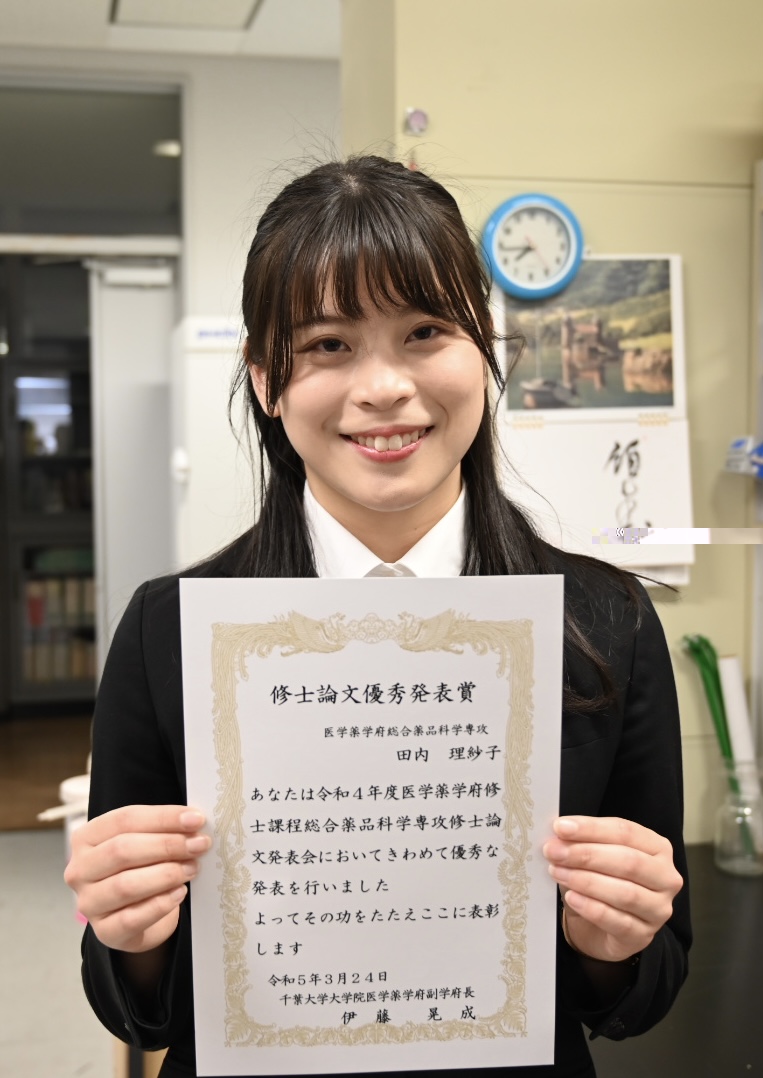 修士論文優秀発表賞
医学薬学府総合薬品科学専攻
田内　理紗子
あなたは令和４年度医学薬学府修
士課程総合薬品科学専攻修士論
文発表会においてきわめて優秀な
発表を行いました
よってその功をたたえここに表彰
します
令和５年３月２４日
千葉大学大学院医学薬学府副学府長
伊　藤　　晃　成